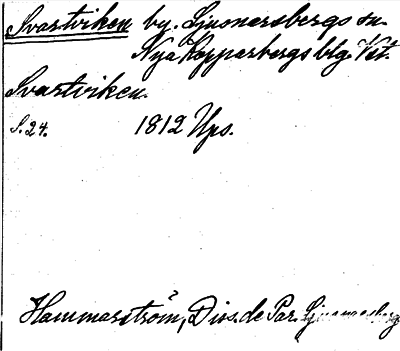 Svartviken by. Ljusnarsbergs sn.
Nya Kopparbergs blg Vst.
Svartviken.
S. 24. 1812 Ups.
Hammarström, Diss. de Par. Ljusnarsberg